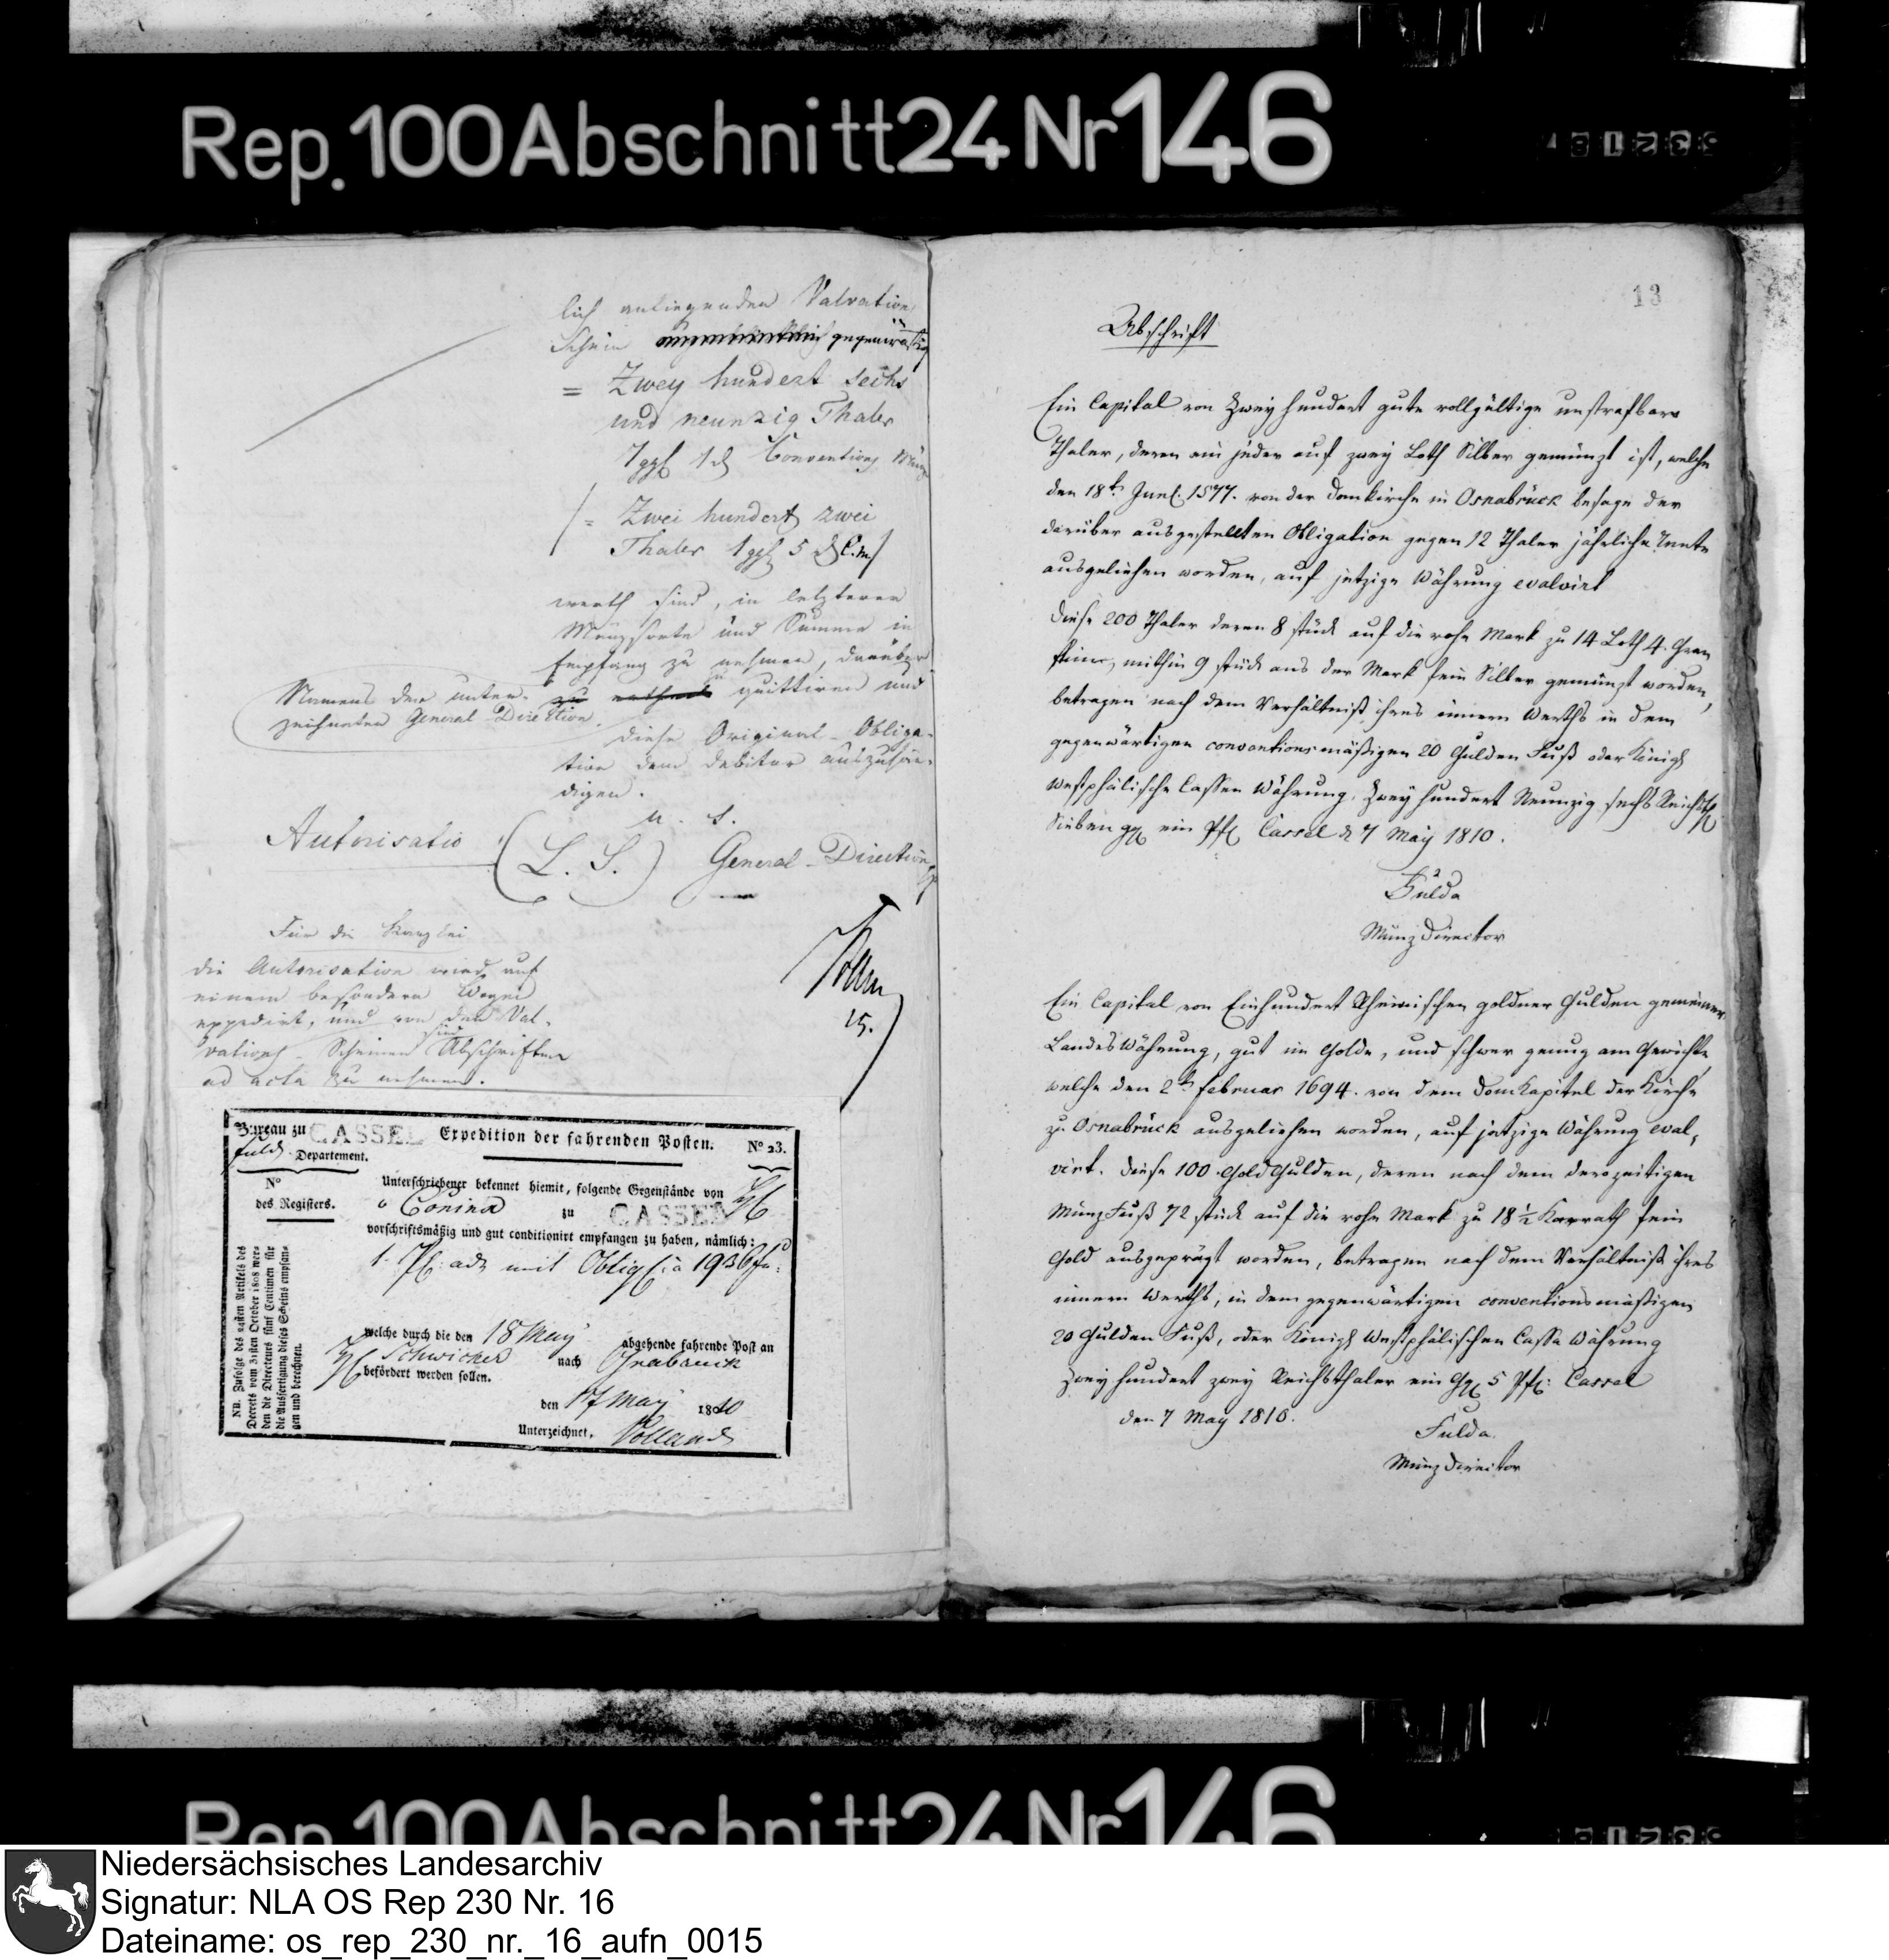 Rep. 100 Abschnitt 24 Nr 146
lich anliegenden Valvations
Schein gegenwärtig
= Zwey hundert sechs
und neunzig Thaler
7 ggl 1 d Conventions Münze
/ = Zwei hundert zwei
Thaler 1 ggl 5 d C.m/
werth sind, in letzterer
Münzsorte und Summe in
Empfang zu nehmen, darüber
Namens der unter-
zeichneten General-Direction
zu quittiren und
diese Original-Obliga-
tion dem debitor auszuhän-
digen.
u. s.
Autorisatio
(L. S.) General-Direction
Für die Kanzlei
die Autorisation wird auf
einem besondern Bogen
expedirt, und von den Val-
vations-Scheinen sind Abschriften
ad acta zu nehmen.
15.
Bureau zu CASSEL
Expedition der fahrenden Posten.
No 23.
Fuld. Departement.
No
des Registers.
Unterschriebener bekennet hiemit, folgende Gegenstände von
zu CASSEL
vorschriftsmäßig und gut conditionirt empfangen zu haben, nämlich:
1. mit Oblig. à 1936
welche durch die den 18 May abgehende fahrende Post an
Schwicker nach Osnabruck
befördert werden sollen.
den 17 May 1810
Unterzeichnet,
NB. Zufolge des 24sten Artikels des
Decrets vom 31sten October 1808 wer-
den die Directeurs fünf Centimen für
die Ausfertigung dieses Scheins empfan-
gen und berechnen.
13
Abschrift
Ein Capital von Zwey hundert gute vollgültige unstrafbare
Thaler, deren ein jeder auf zwey Loth Silber gemünzt ist, welche
den 18t. Junl. 1577. von der Domkirche in Osnabrück besage der
darüber ausgestellten Obligation gegen 12 Thaler jährliche Rente
ausgeliehen worden, auf jetzige Währung evalvirt
Diese 200 Thaler deren 8 stück auf die rohe Mark zu 14 Loth 4. Gren
feine, mithin 9 stück aus der Mark fein Silber gemünzt worden,
betragen nach dem Verhältniß ihres innern Werths in dem
gegenwärtigen conventionsmäßigen 20 Gulden Fuß oder Königl
Westphälische Cassen Währung, Zwey hundert Neunzig sechs Reichsthl
Sieben ggl ein Pfl Cassel d 7 May 1810.
Fulda
Münz Director
Ein Capital von Einhundert Rheinischen goldner Gulden gemeiner
Landes Währung, gut im Golde, und schwer genug am Gewichte
welche den 2t. Februar 1694. von dem Domkapitel der Kirche
zu Osnabrück ausgeliehen worden, auf jetzige Währung eval-
virt. Diese 100 Gold Gulden, deren nach dem derozeitigen
Münz Fuß 72 stück auf die rohe Mark zu 18 1/2 Karrath fein
Gold ausgeprägt worden, betragen nach dem Verhältniß ihres
innern Werths, in dem gegenwärtigen conventionsmäßigen
20 Gulden Fuß, oder Königl Westphälischen Cassa Währung
Zwey hundert zwey Reichsthaler ein Ggl 5 Pfl: Cassel
den 7 May 1810.
Fulda.
Münz Director
Rep. 100 Abschnitt 24 Nr 146
Niedersächsisches Landesarchiv
Signatur: NLA OS Rep 230 Nr. 16
Dateiname: os_rep_230_nr._16_aufn_0015